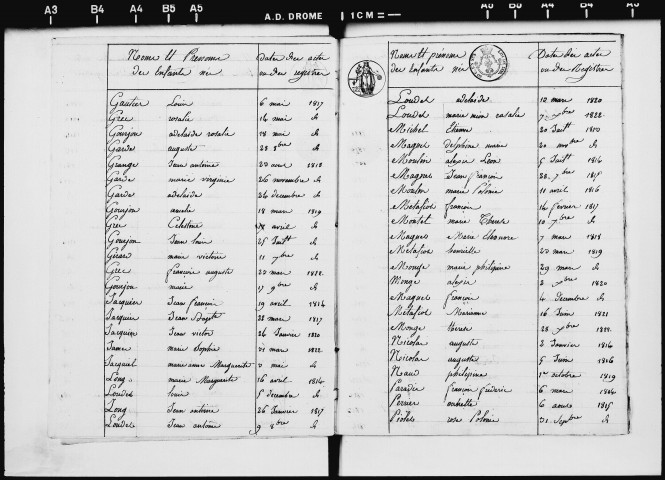 A3 B4 A4 B5 A5 A.D. DROME 1CM = A6 B6 A4 B4 A3
Noms et Prenoms Dates des actes
des enfants nés ou des registres
Gautier Louis 6 mai 1817
Grec rosalie 16 mai d
Gourjon adelaide rosalie 18 mai d
Garde auguste 23 8bre d
Grange Jean antoine 20 avril 1818
Garde marie virginie 26 novembre d
Garde adelaide 24 decembre d
Goujon 18 mars 1819
Grec Celestine 18 avril d
Goujon Jean louis 25 Juillt d
Gerard marie victoire 11 7bre d
Grec françois auguste 20 mars 1822
Goujon marie 17 9bre d
Jacquier Jean françois 19 avril 1814
Jacquier Jean Baptte 28 mars 1817
Jacquier Jean victor 26 Janvier 1820
James marie Sophie 21 mars 1822
Jacquet marie anne Marguerite 2 mai d
Long marie Marguerite 16 avril 1814
Loudet louis 5 decembre d
Long Jean antoine 26 Janvier 1817
Loudet Jean antoine 9 8bre d
Noms et prénoms Dates des actes
des enfants nés ou des Registres
Loudet adelaide 12 mars 1820
Loudet marie rosalie 7 9bre 1822
Michel Etienne 20 Juillt 1810
Magnet delphine marie 20 novbre d
Moulin alexis Léon 5 Juillt 1816
Magnet Jean françois 28 7bre 1815
Moulin marie Polonie 11 avril 1816
Metafiot françois 14 fevrier 1817
Montel marie Therese 10 7bre d
Magnet Marie Eleonore 7 mars 1818
Metafiot henriette 20 mars 1819
Monge marie philipine 29 mars d
Monge alexis 2 9bre 1820
Magnet françois 4 decembre d
Metafiot Marianne 16 Juin 1821
Monge therese 28 9bre 1822
Nicolas auguste 2 Janvier 1816
Nicolas auguste 5 Juin 1816
Naud philipine 1er octobre 1819
Paradis françois fréderic 6 mars 1814
Perrier 6 1815
rose Polonie 21 Septbre d